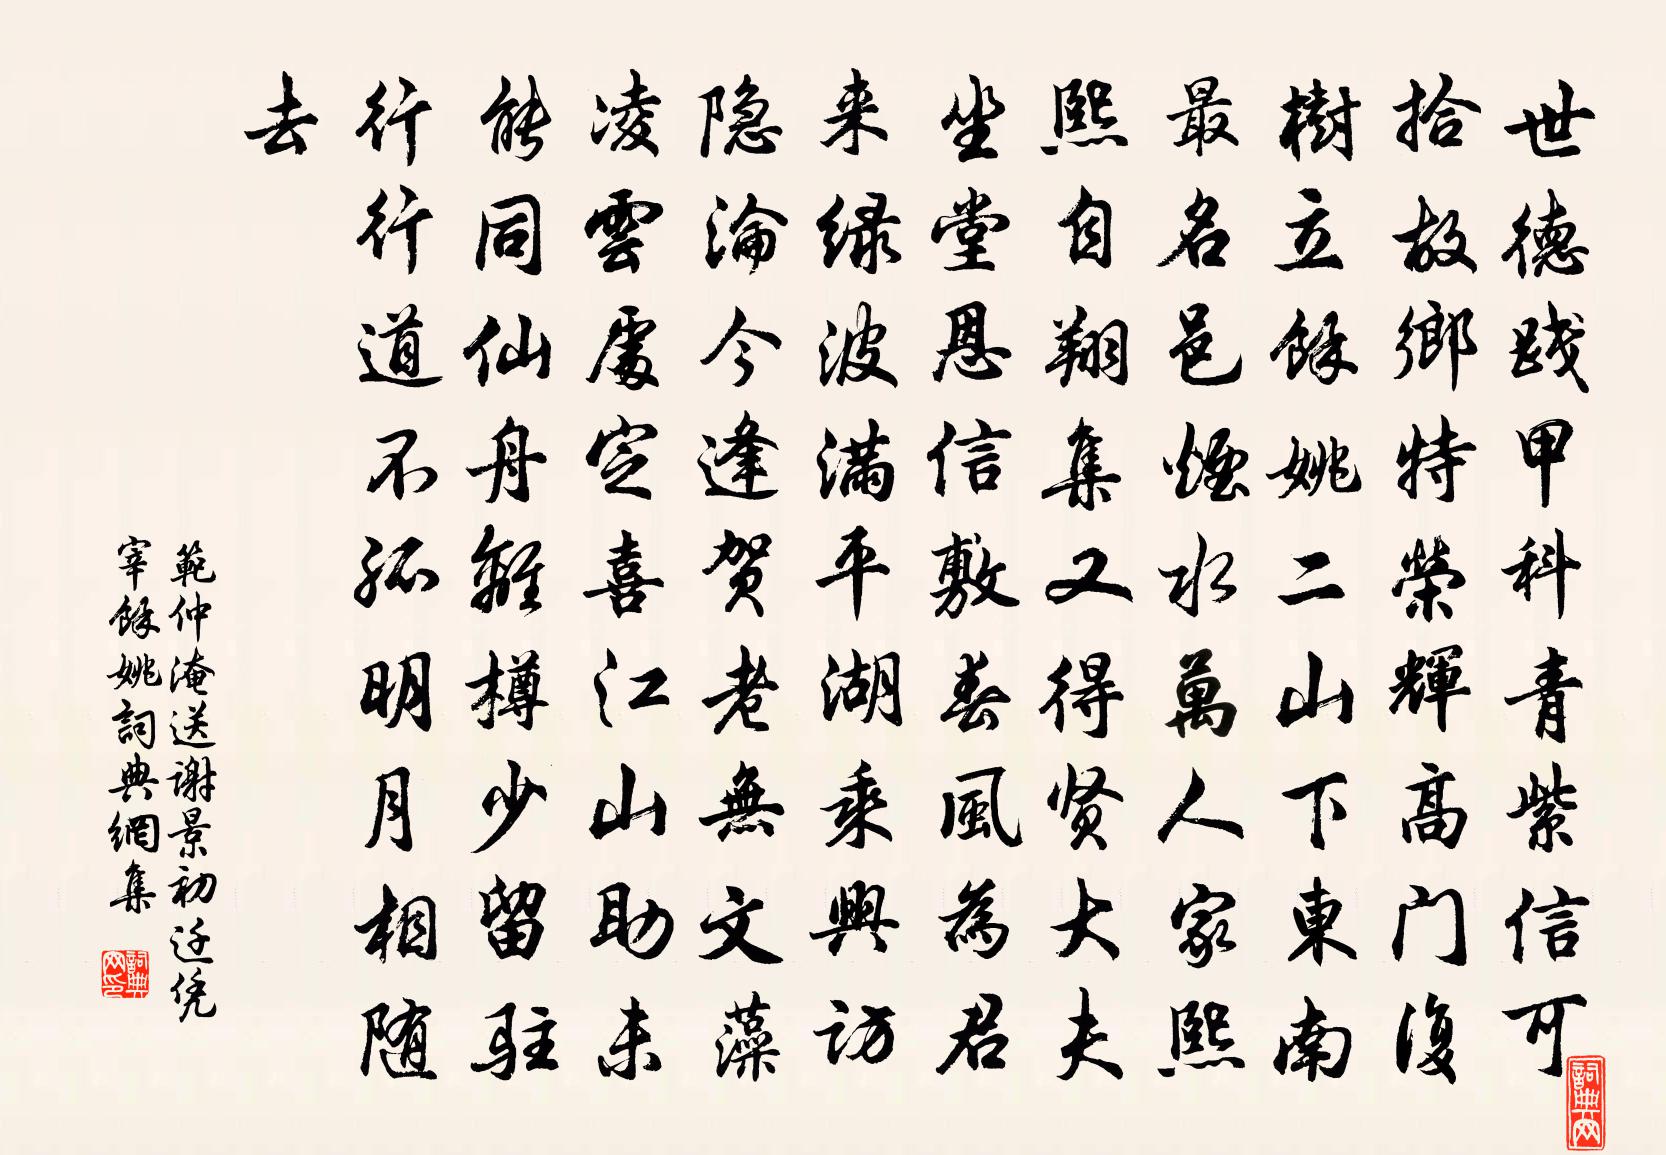 世德践甲科青紫信可
拾故鄉特榮輝高门復
樹立餘姚二山下東南
最名邑煙水萬人家熙
熙自翔集又得贤大夫
坐堂恩信敷春風為君
来绿波满平湖乘興访
隐淪今逢贺老無文藻
凌雲處定喜江山助未
能同仙舟離樽少留驻
行行道不孤明月相随
去
範仲淹送谢景初迁凭
宰餘姚詞典網集
詞典网印
詞典网